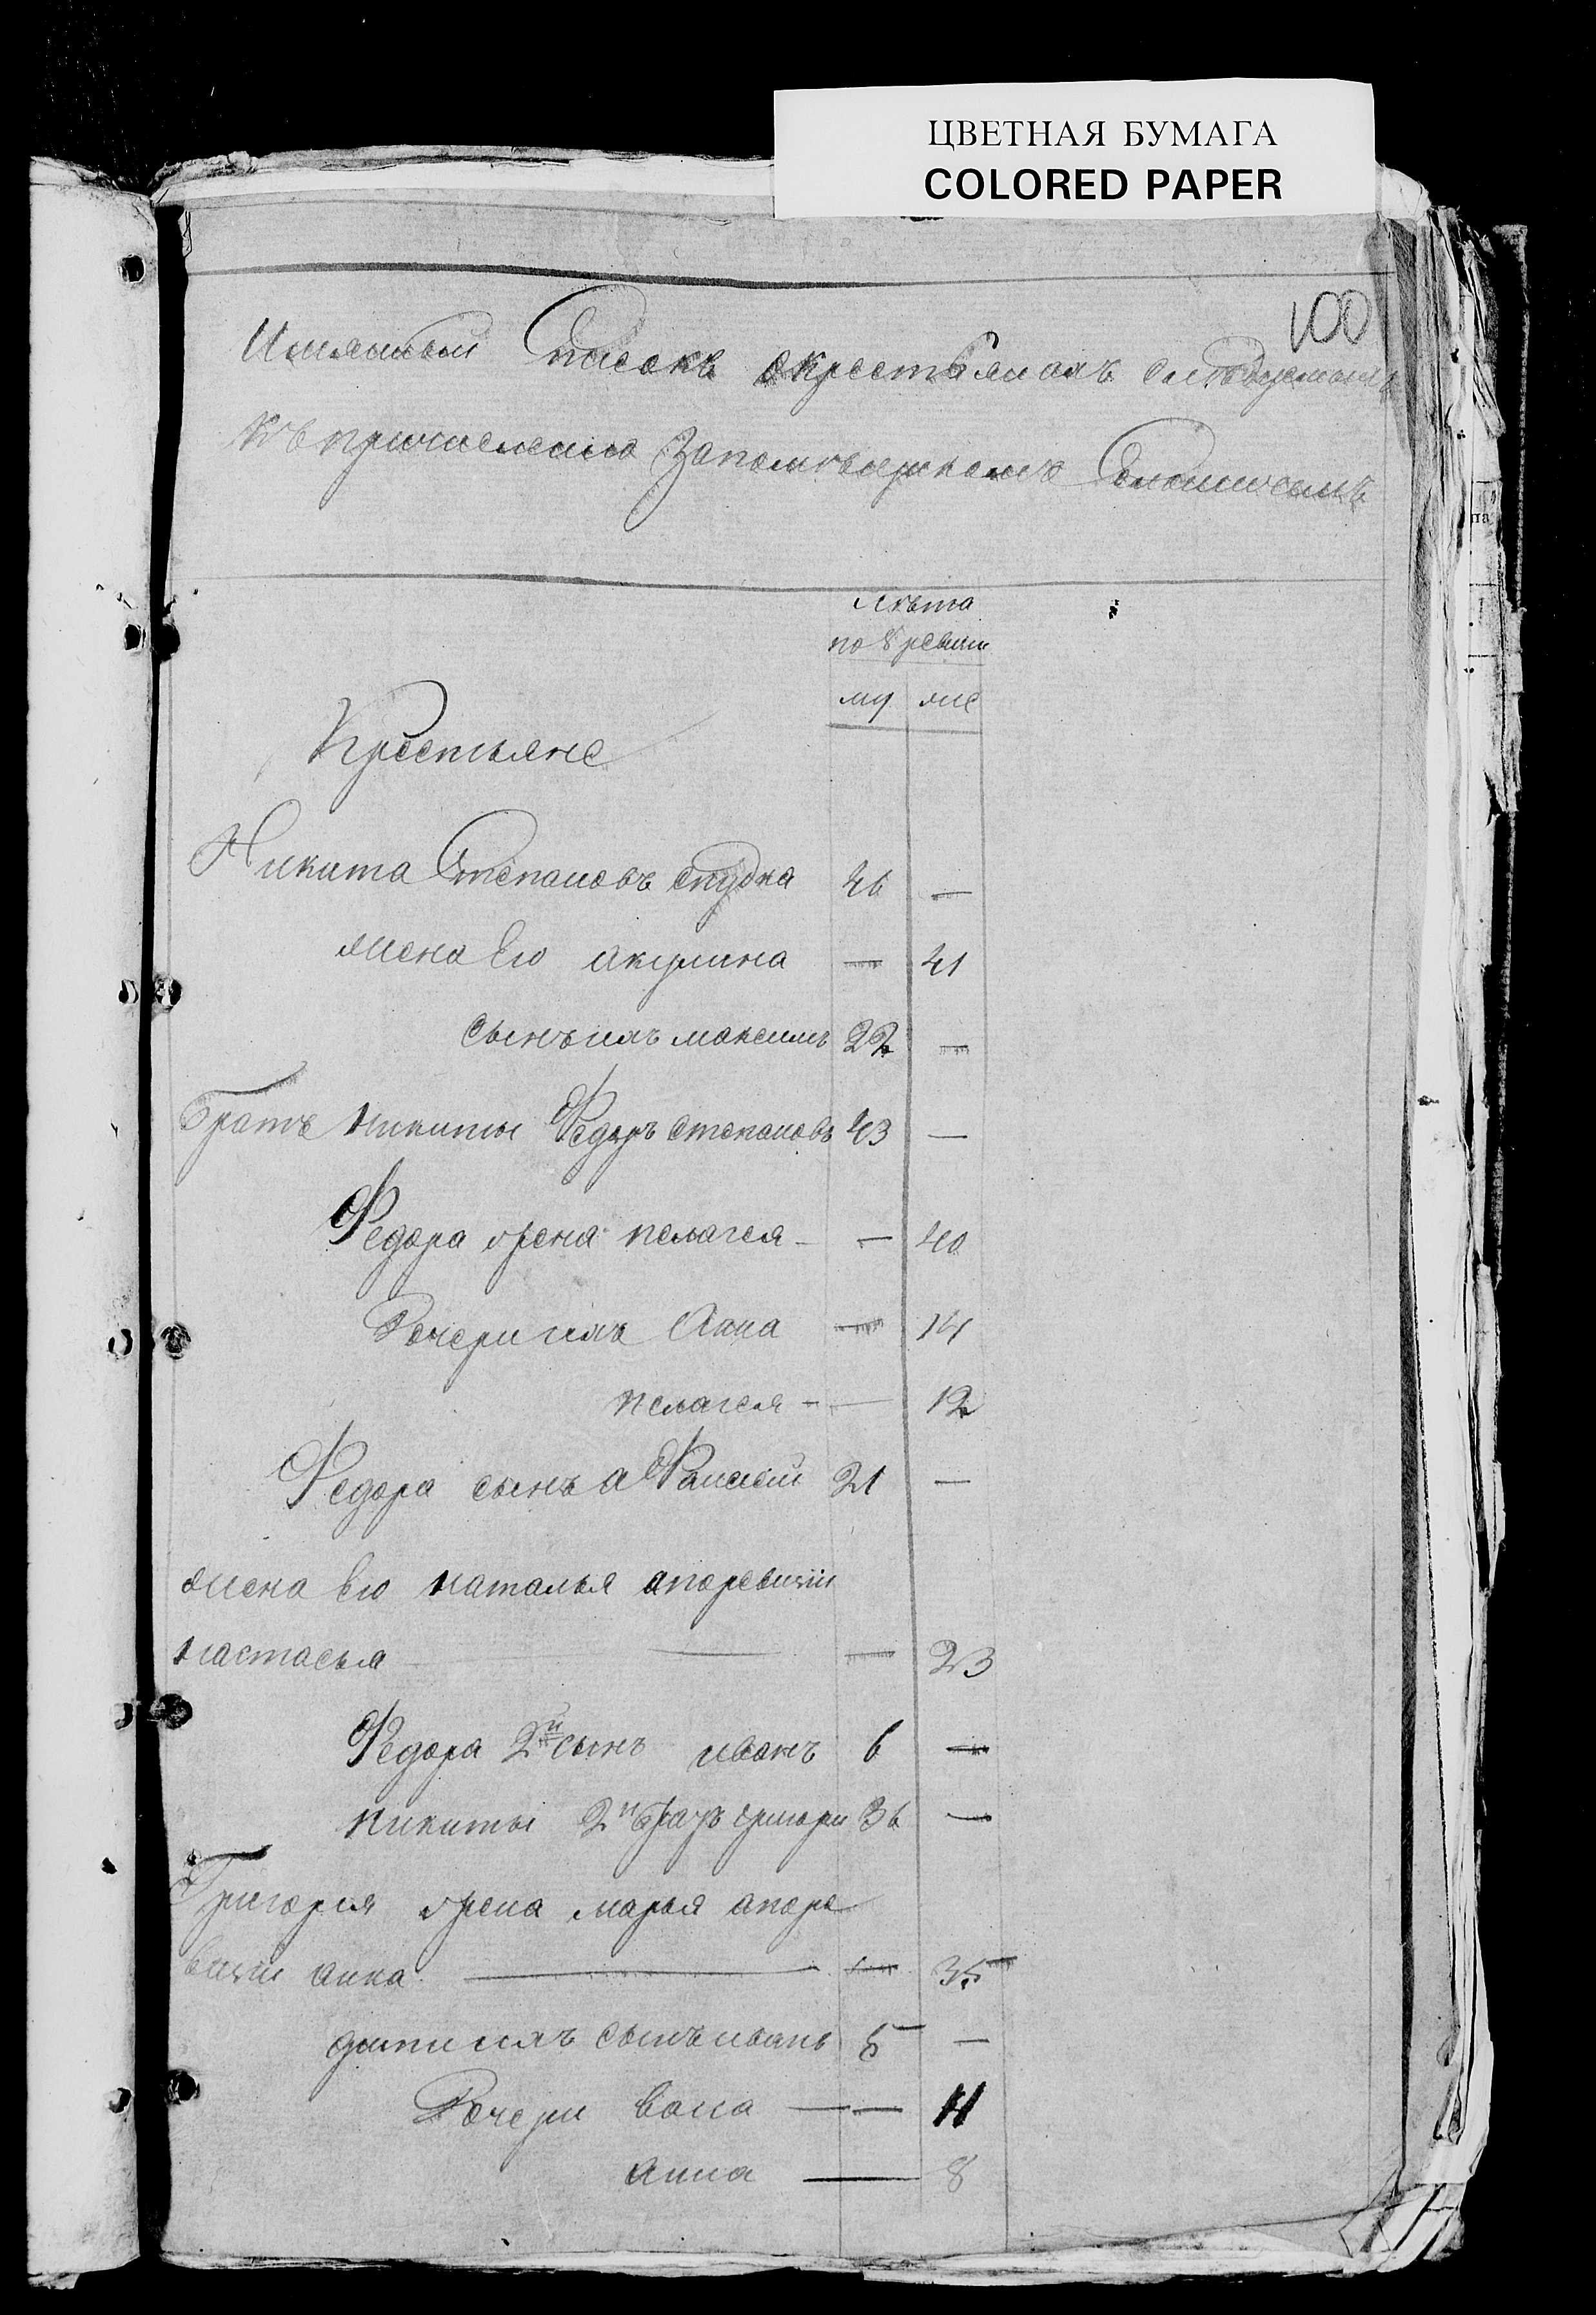 ЦВЕТНАЯ БУМАГА
COLORED PAPER
100
Имянный Списокъ окрестьянахъ следуемыхъ
Къ причислению Запомѣщикомъ
лѣта
по 8 ревизии
му же
Крестьяне
Никита Степановъ 46 —
жена Его акулина — 41
сынъ ихъ максимъ 22 —
Братъ никиты Федоръ степановъ 43 —
Федора жена пелагея — — 40
Дочери ихъ Анна — 14
пелагея — — 12
Федора сынъ аФанасий 21 —
жена Его наталья апоревизии
настасья — — 23
Федора 2й сынъ иванъ 6 —
никиты 2й братъ григори 36 —
Григория жена марья апоре
визии анна — — 35
дети ихъ сынъ иванъ 5 —
Дочери — — 11
анна — 8